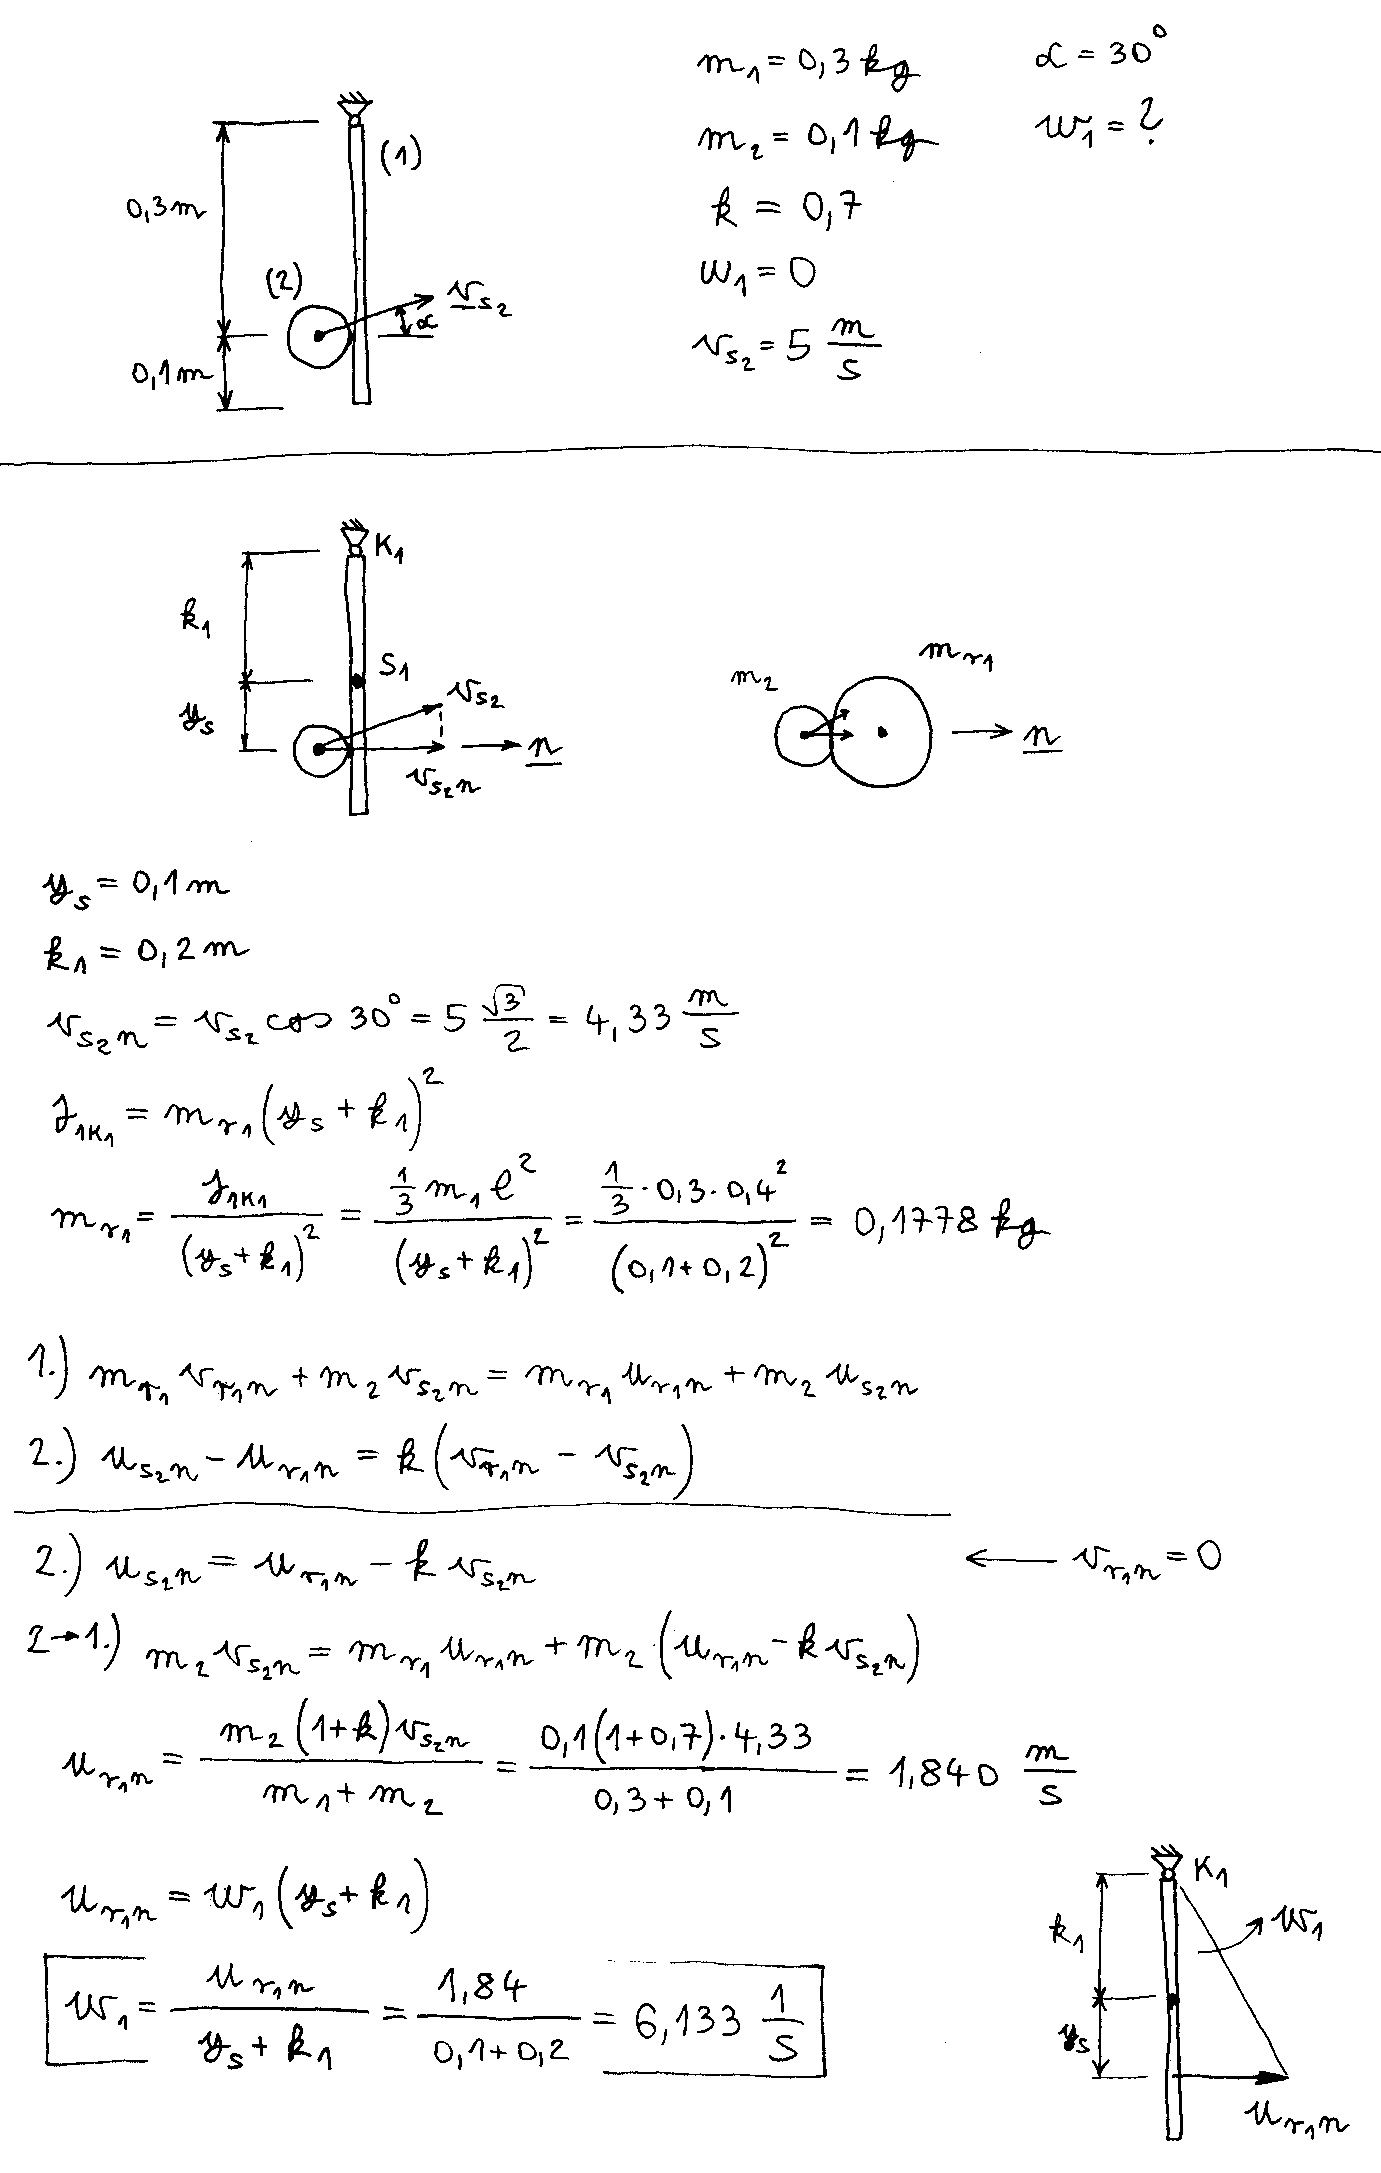 m₁ = 0,3 kg α = 30°
m₂ = 0,1 kg w₁ = ?
k = 0,7
ω₁ = 0
v_S₂ = 5 m/s
0,3 m
(1)
(2)
v_S₂
α
0,1 m
K₁
k₁
S₁
y_s
v_S₂
n
v_S₂n
m₂
m_r₁
n
y_s = 0,1 m
k₁ = 0,2 m
v_S₂n = v_S₂ cos 30° = 5 √3/2 = 4,33 m/s
J_1K₁ = m_r₁ (y_s + k₁)²
m_r₁ = J_1K₁/(y_s + k₁)² = (1/3 m₁ l²)/(y_s + k₁)² = (1/3 · 0,3 · 0,4²)/(0,1 + 0,2)² = 0,1778 kg
1.) m_r₁ v_r₁n + m₂ v_S₂n = m_r₁ u_r₁n + m₂ u_S₂n
2.) u_S₂n - u_r₁n = k (v_r₁n - v_S₂n)
2.) u_S₂n = u_r₁n - k v_S₂n ← v_r₁n = 0
2→1.) m₂ v_S₂n = m_r₁ u_r₁n + m₂ (u_r₁n - k v_S₂n)
u_r₁n = m₂ (1+k) v_S₂n/(m₁ + m₂) = 0,1(1+0,7)·4,33/(0,3 + 0,1) = 1,840 m/s
u_r₁n = w₁ (y_s + k₁)
w₁ = u_r₁n/(y_s + k₁) = 1,84/(0,1+0,2) = 6,133 1/s
K₁
k₁
w₁
y_s
u_r₁n